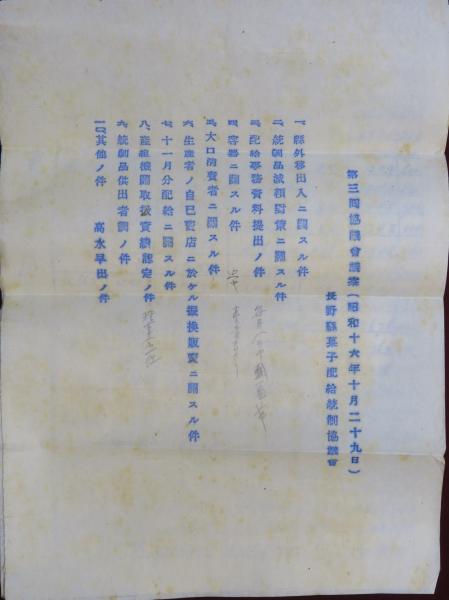 第三囘協議會議案(昭和十六年十月二十九日)
長野縣菓子配給統制協議會
一、縣外移出入ニ關スル件
二、統制品減額對策ニ關スル件
三、配給事務資料提出ノ件
四、容器ニ關スル件
五、大口消費者ニ關スル件
六、生産者ノ自己賣店ニ於ケル振換販賣ニ關スル件
七、十一月分配給ニ關スル件
八、産組機關取扱實績認定ノ件
九、統制品供出者調ノ件
一〇、其他ノ件 高水早出ノ件